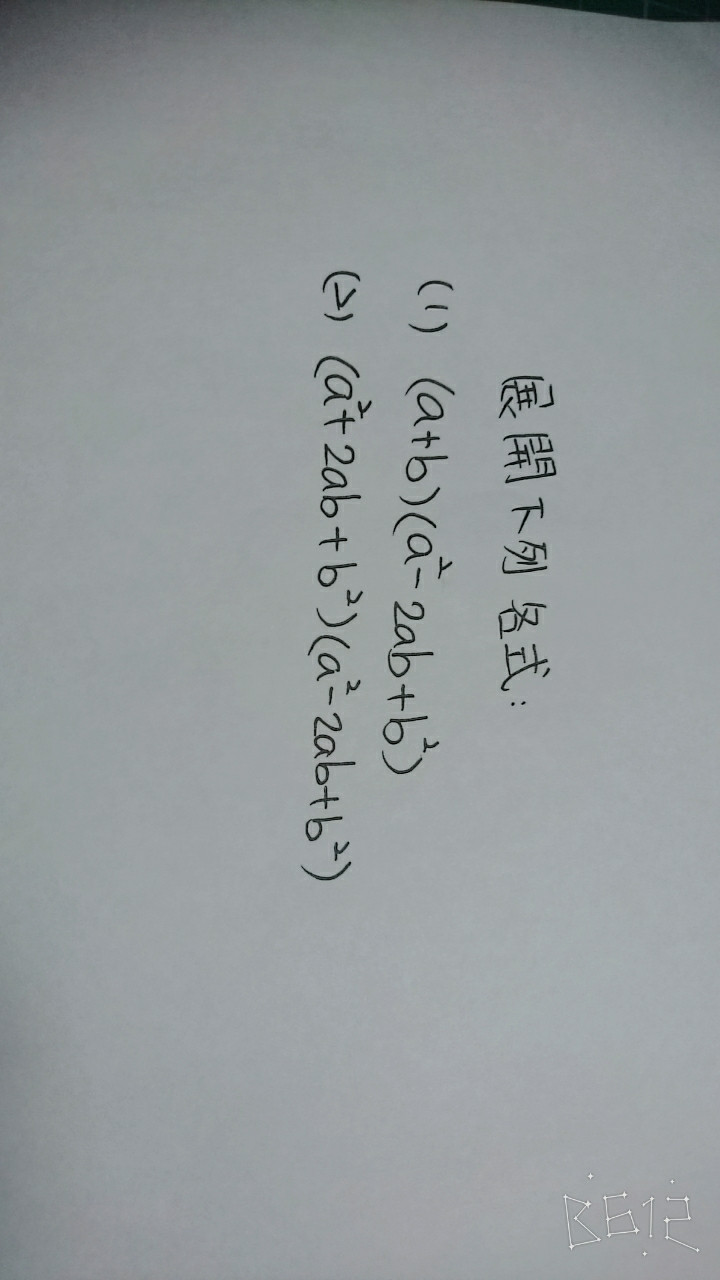 展開下列各式:
(1) (a+b)(a²-2ab+b²)
(2) (a²+2ab+b²)(a²-2ab+b²)
B612